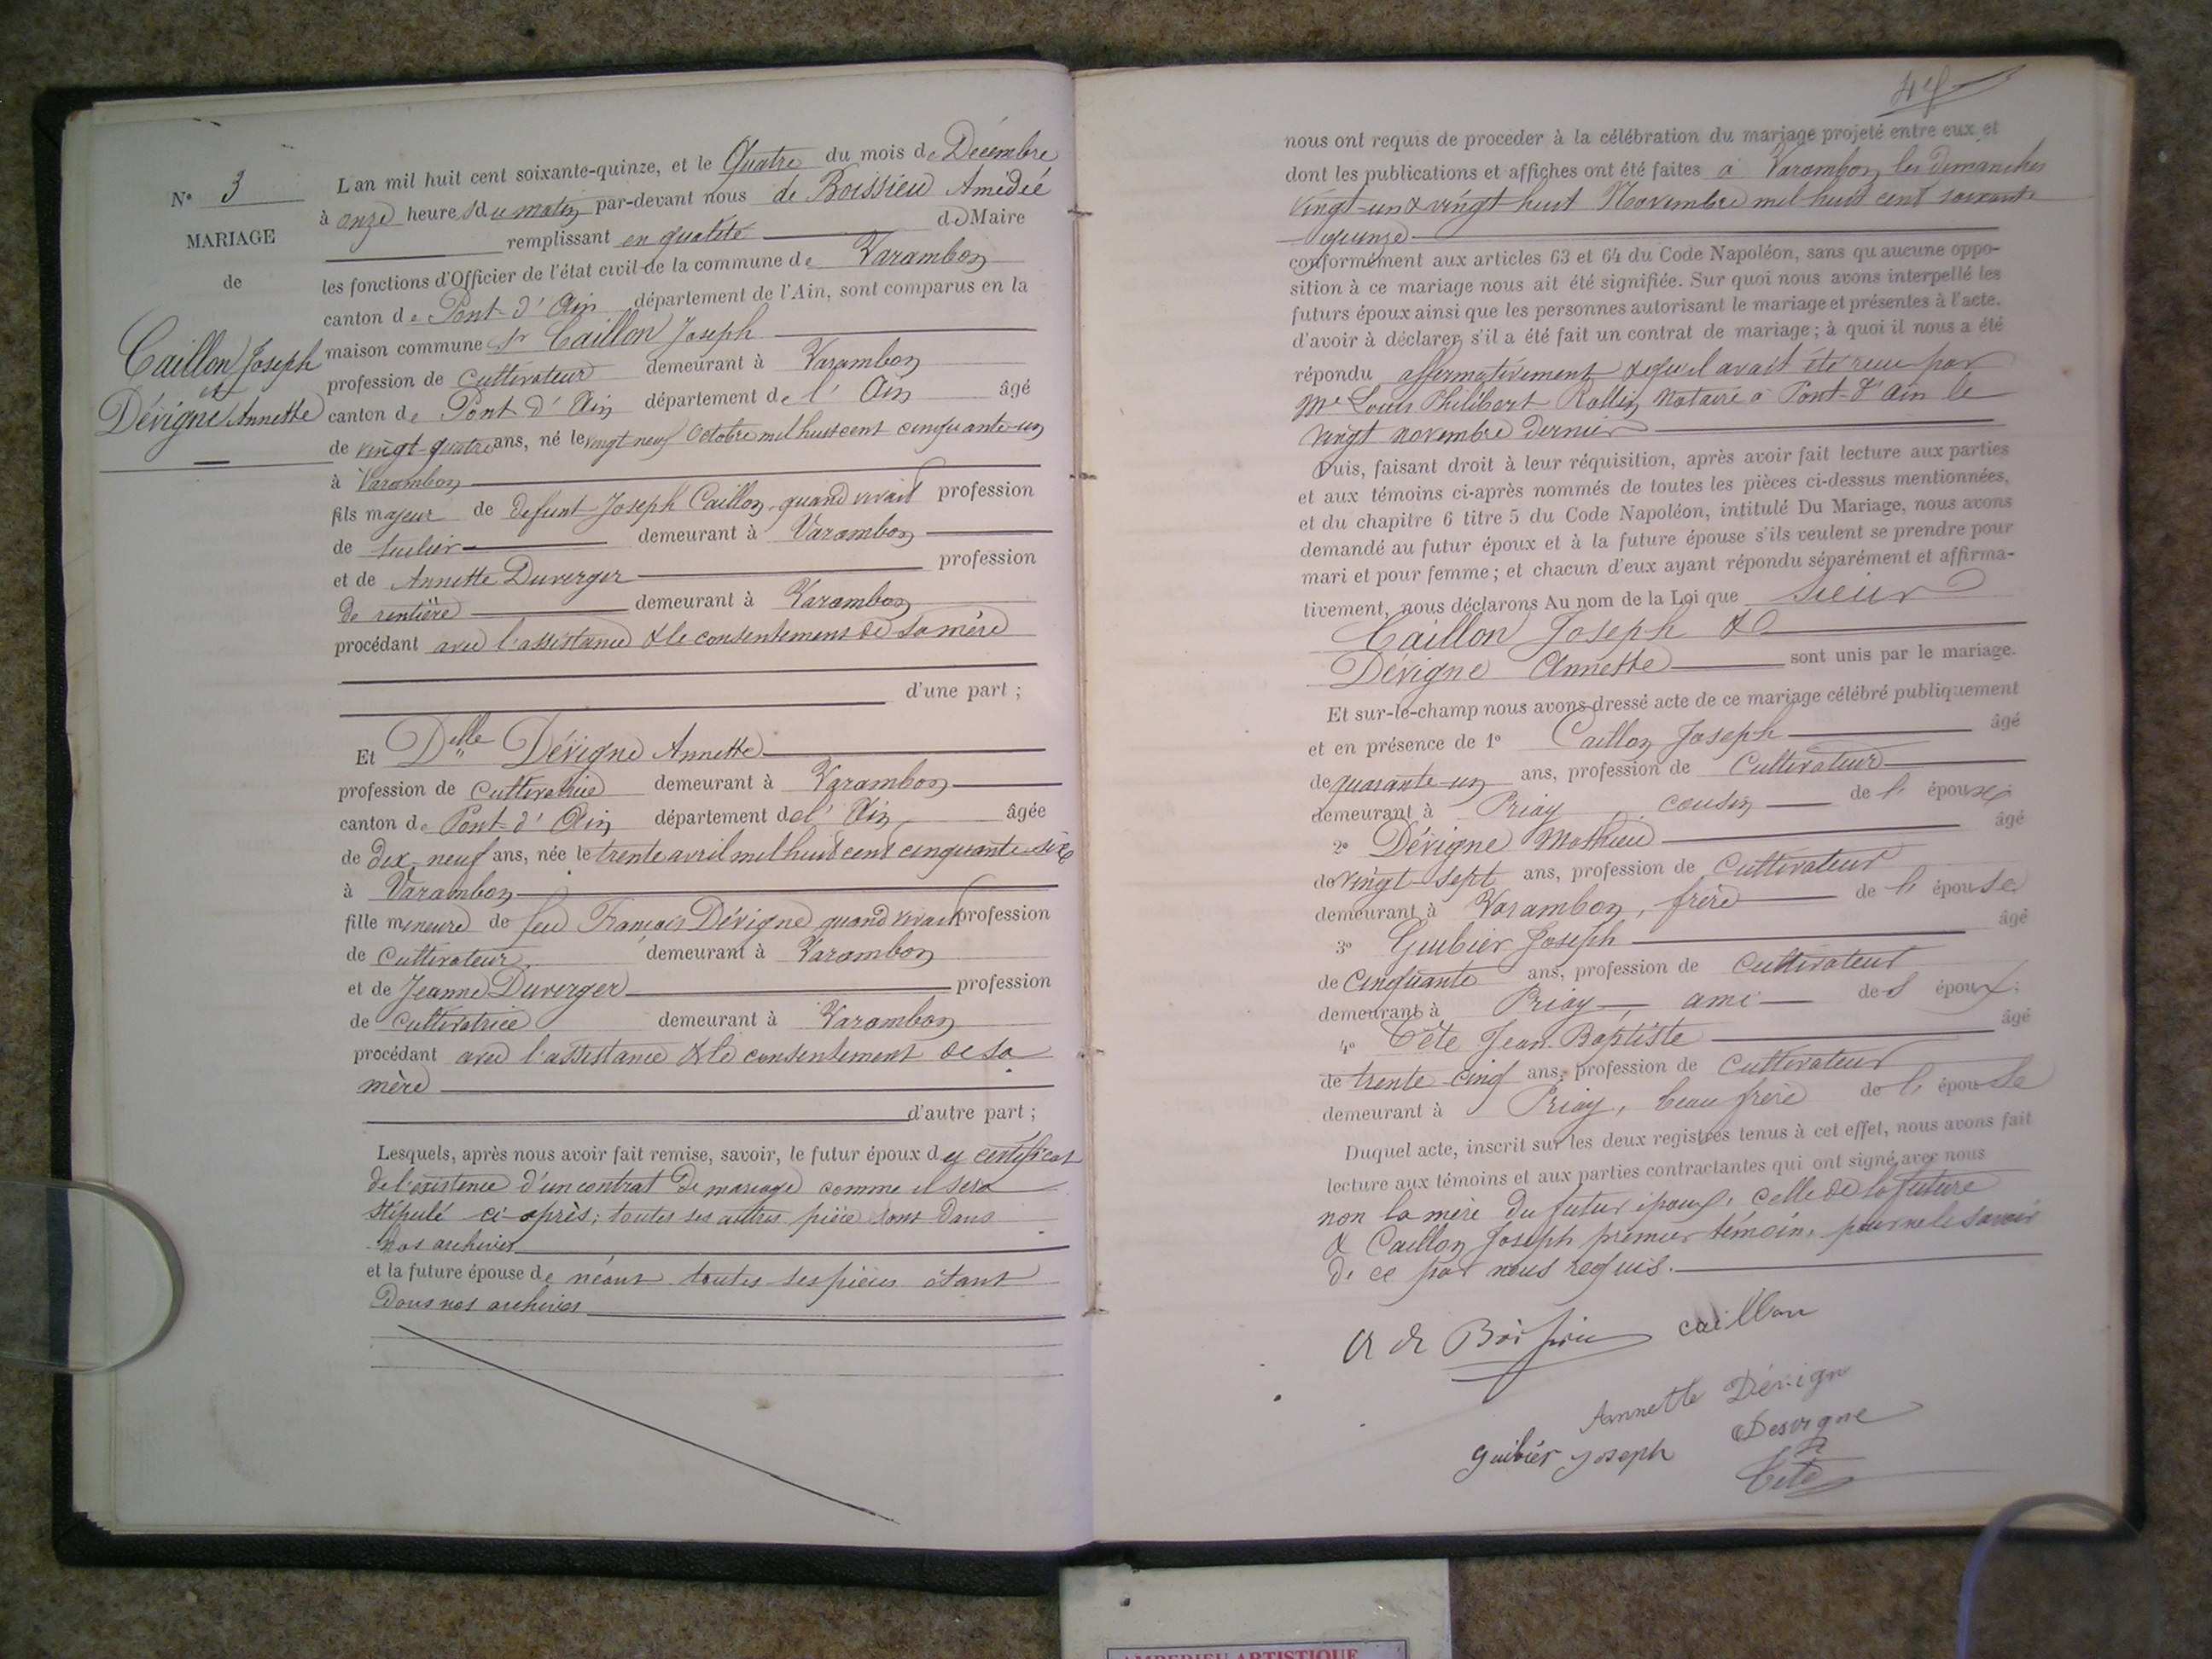 N° 3
MARIAGE
de
Caillon Joseph
et
Dévigne Annette
L'an mil huit cent soixante-quinze, et le Quatre du mois de Décembre
à onze heures du matin par-devant nous de Boissieu Amédée
remplissant en qualité de Maire
les fonctions d'Officier de l'état civil de la commune de Varambon
canton de Pont-d'Ain département de l'Ain, sont comparus en la
maison commune Sr Caillon Joseph
profession de cultivateur demeurant à Varambon
canton de Pont d'Ain département de l'Ain âgé
de vingt-quatre ans, né le vingt neuf Octobre mil huit cent cinquante-un
à Varambon
fils majeur de défunt Joseph Caillon, quand vivait profession
de tuilier demeurant à Varambon
et de Annette Duverger profession
de rentière demeurant à Varambon
procédant avec l'assistance & le consentement de sa mère
d'une part ;
Et Delle Dévigne Annette
profession de cultivatrice demeurant à Varambon
canton de Pont-d'Ain département de l'Ain, âgée
de dix-neuf ans, née le trente avril mil huit cent cinquante-six
à Varambon
fille mineure de feu François Dévigne quand vivait profession
de cultivateur demeurant à Varambon
et de Jeanne Duverger profession
de cultivatrice demeurant à Varambon
procédant avec l'assistance & le consentement de sa
mère
d'autre part ;
Lesquels, après nous avoir fait remise, savoir, le futur époux du certificat
de l'existence d'un contrat de mariage comme il sera
stipulé ci-après; toutes ses autres pièces sont dans
nos archives
et la future épouse de néant toutes ses pièces étant
dans nos archives
nous ont requis de procéder à la célébration du mariage projeté entre eux et
dont les publications et affiches ont été faites à Varambon les dimanches
vingt-un & vingt-huit Novembre mil huit cent soixante
quinze
conformément aux articles 63 et 64 du Code Napoléon, sans qu'aucune oppo-
sition à ce mariage nous ait été signifiée. Sur quoi nous avons interpellé les
futurs époux ainsi que les personnes autorisant le mariage et présentes à l'acte.
d'avoir à déclarer s'il a été fait un contrat de mariage ; à quoi il nous a été
répondu affirmativement & qu'il avait été reçu par
Me Louis Philibert Rollin, Notaire à Pont-d'Ain le
vingt novembre dernier
Puis, faisant droit à leur réquisition, après avoir fait lecture aux parties
et aux témoins ci-après nommés de toutes les pièces ci-dessus mentionnées,
et du chapitre 6 titre 5 du Code Napoléon, intitulé Du Mariage, nous avons
demandé au futur époux et à la future épouse s'ils veulent se prendre pour
mari et pour femme ; et chacun d'eux ayant répondu séparément et affirma-
tivement, nous déclarons Au nom de la Loi que Sieur
Caillon Joseph &
Dévigne Annette sont unis par le mariage.
Et sur-le-champ nous avons dressé acte de ce mariage célébré publiquement
et en présence de 1° Caillon Joseph âgé
de quarante-un ans, profession de Cultivateur
demeurant à Priay, cousin de l'époux
2° Dévigne Mathieu âgé
de vingt-sept ans, profession de Cultivateur
demeurant à Varambon, frère de l'épouse
3° Guibier Joseph âgé
de cinquante ans, profession de cultivateur
demeurant à Priay, ami des époux ;
4° Tête Jean Baptiste âgé
de trente-cinq ans, profession de cultivateur
demeurant à Priay, beau frère de l'épouse
Duquel acte, inscrit sur les deux registres tenus à cet effet, nous avons fait
lecture aux témoins et aux parties contractantes qui ont signé avec nous
non la mère du futur époux, celle de la future
& Caillon Joseph premier témoin, pour ne le savoir
de ce par nous requis.
A de Boissieu Caillon
Annette Dévigne
Guibier Joseph Desvigne
Tête
AMBERIEU ARTISTIQUE